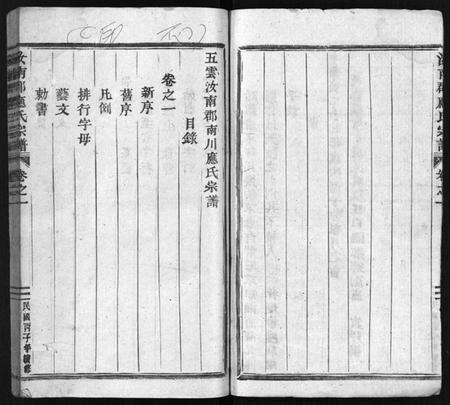 汝南郡應氏宗譜
卷之一
五雲汝南郡南川應氏宗譜
目錄
卷之一
新序
舊序
凡例
排行字母
藝文
勅書
汝南郡應氏宗譜
卷之一